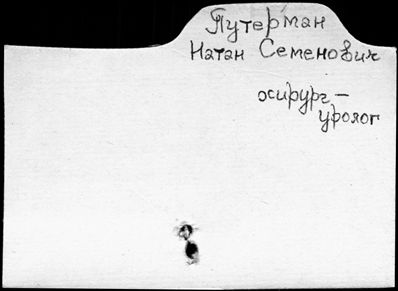 Путерман
Натан Семенович
хирург-
уролог